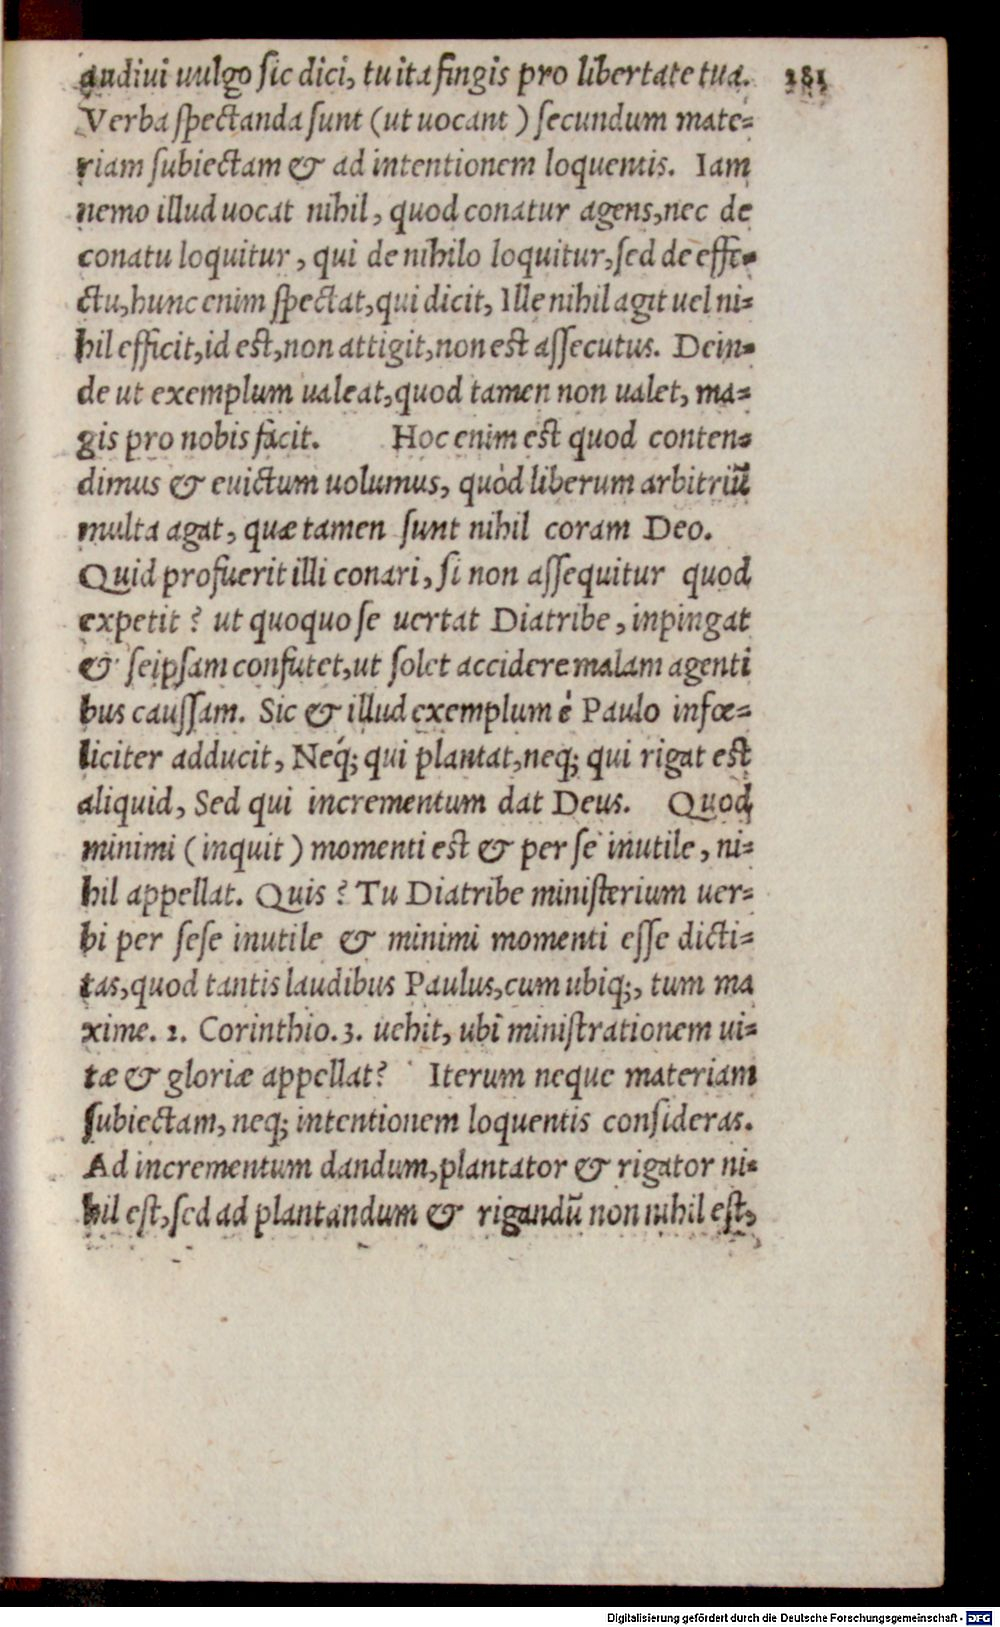 audiui uulgo sic dici, tu ita fingis pro libertate tua. 281
Verba spectanda sunt (ut uocant) secundum mate=
riam subiectam & ad intentionem loquentis. Iam
nemo illud uocat nihil, quod conatur agens, nec de
conatu loquitur, qui de nihilo loquitur, sed de effe=
ctu, hunc enim spectat, qui dicit, Ille nihil agit uel ni=
hil efficit, id est, non attigit, non est assecutus. Dein=
de ut exemplum ualeat, quod tamen non ualet, ma=
gis pro nobis facit. Hoc enim est quod conten=
dimus & euictum uolumus, quòd liberum arbitriũ
multa agat, quæ tamen sunt nihil coram Deo.
Quid profuerit illi conari, si non assequitur quod
expetit? ut quoquo se uertat Diatribe, inpingat
& seipsam confutet, ut solet accidere malam agenti
bus caussam. Sic & illud exemplum è Paulo infœ=
liciter adducit, Neq́; qui plantat, neq; qui rigat est
aliquid, Sed qui incrementum dat Deus. Quod
minimi (inquit) momenti est & per se inutile, ni=
hil appellat. Quis? Tu Diatribe ministerium uer=
bi per sese inutile & minimi momenti esse dicti=
tas, quod tantis laudibus Paulus, cum ubiq;, tum ma
xime. 2. Corinthio. 3. uehit, ubi ministrationem ui=
tæ & gloriæ appellat? Iterum neque materiam
subiectam, neq; intentionem loquentis consideras.
Ad incrementum dandum, plantator & rigator ni=
hil est, sed ad plantandum & rigandũ non nihil est,
Digitalisierung gefördert durch die Deutsche Forschungsgemeinschaft - DFG